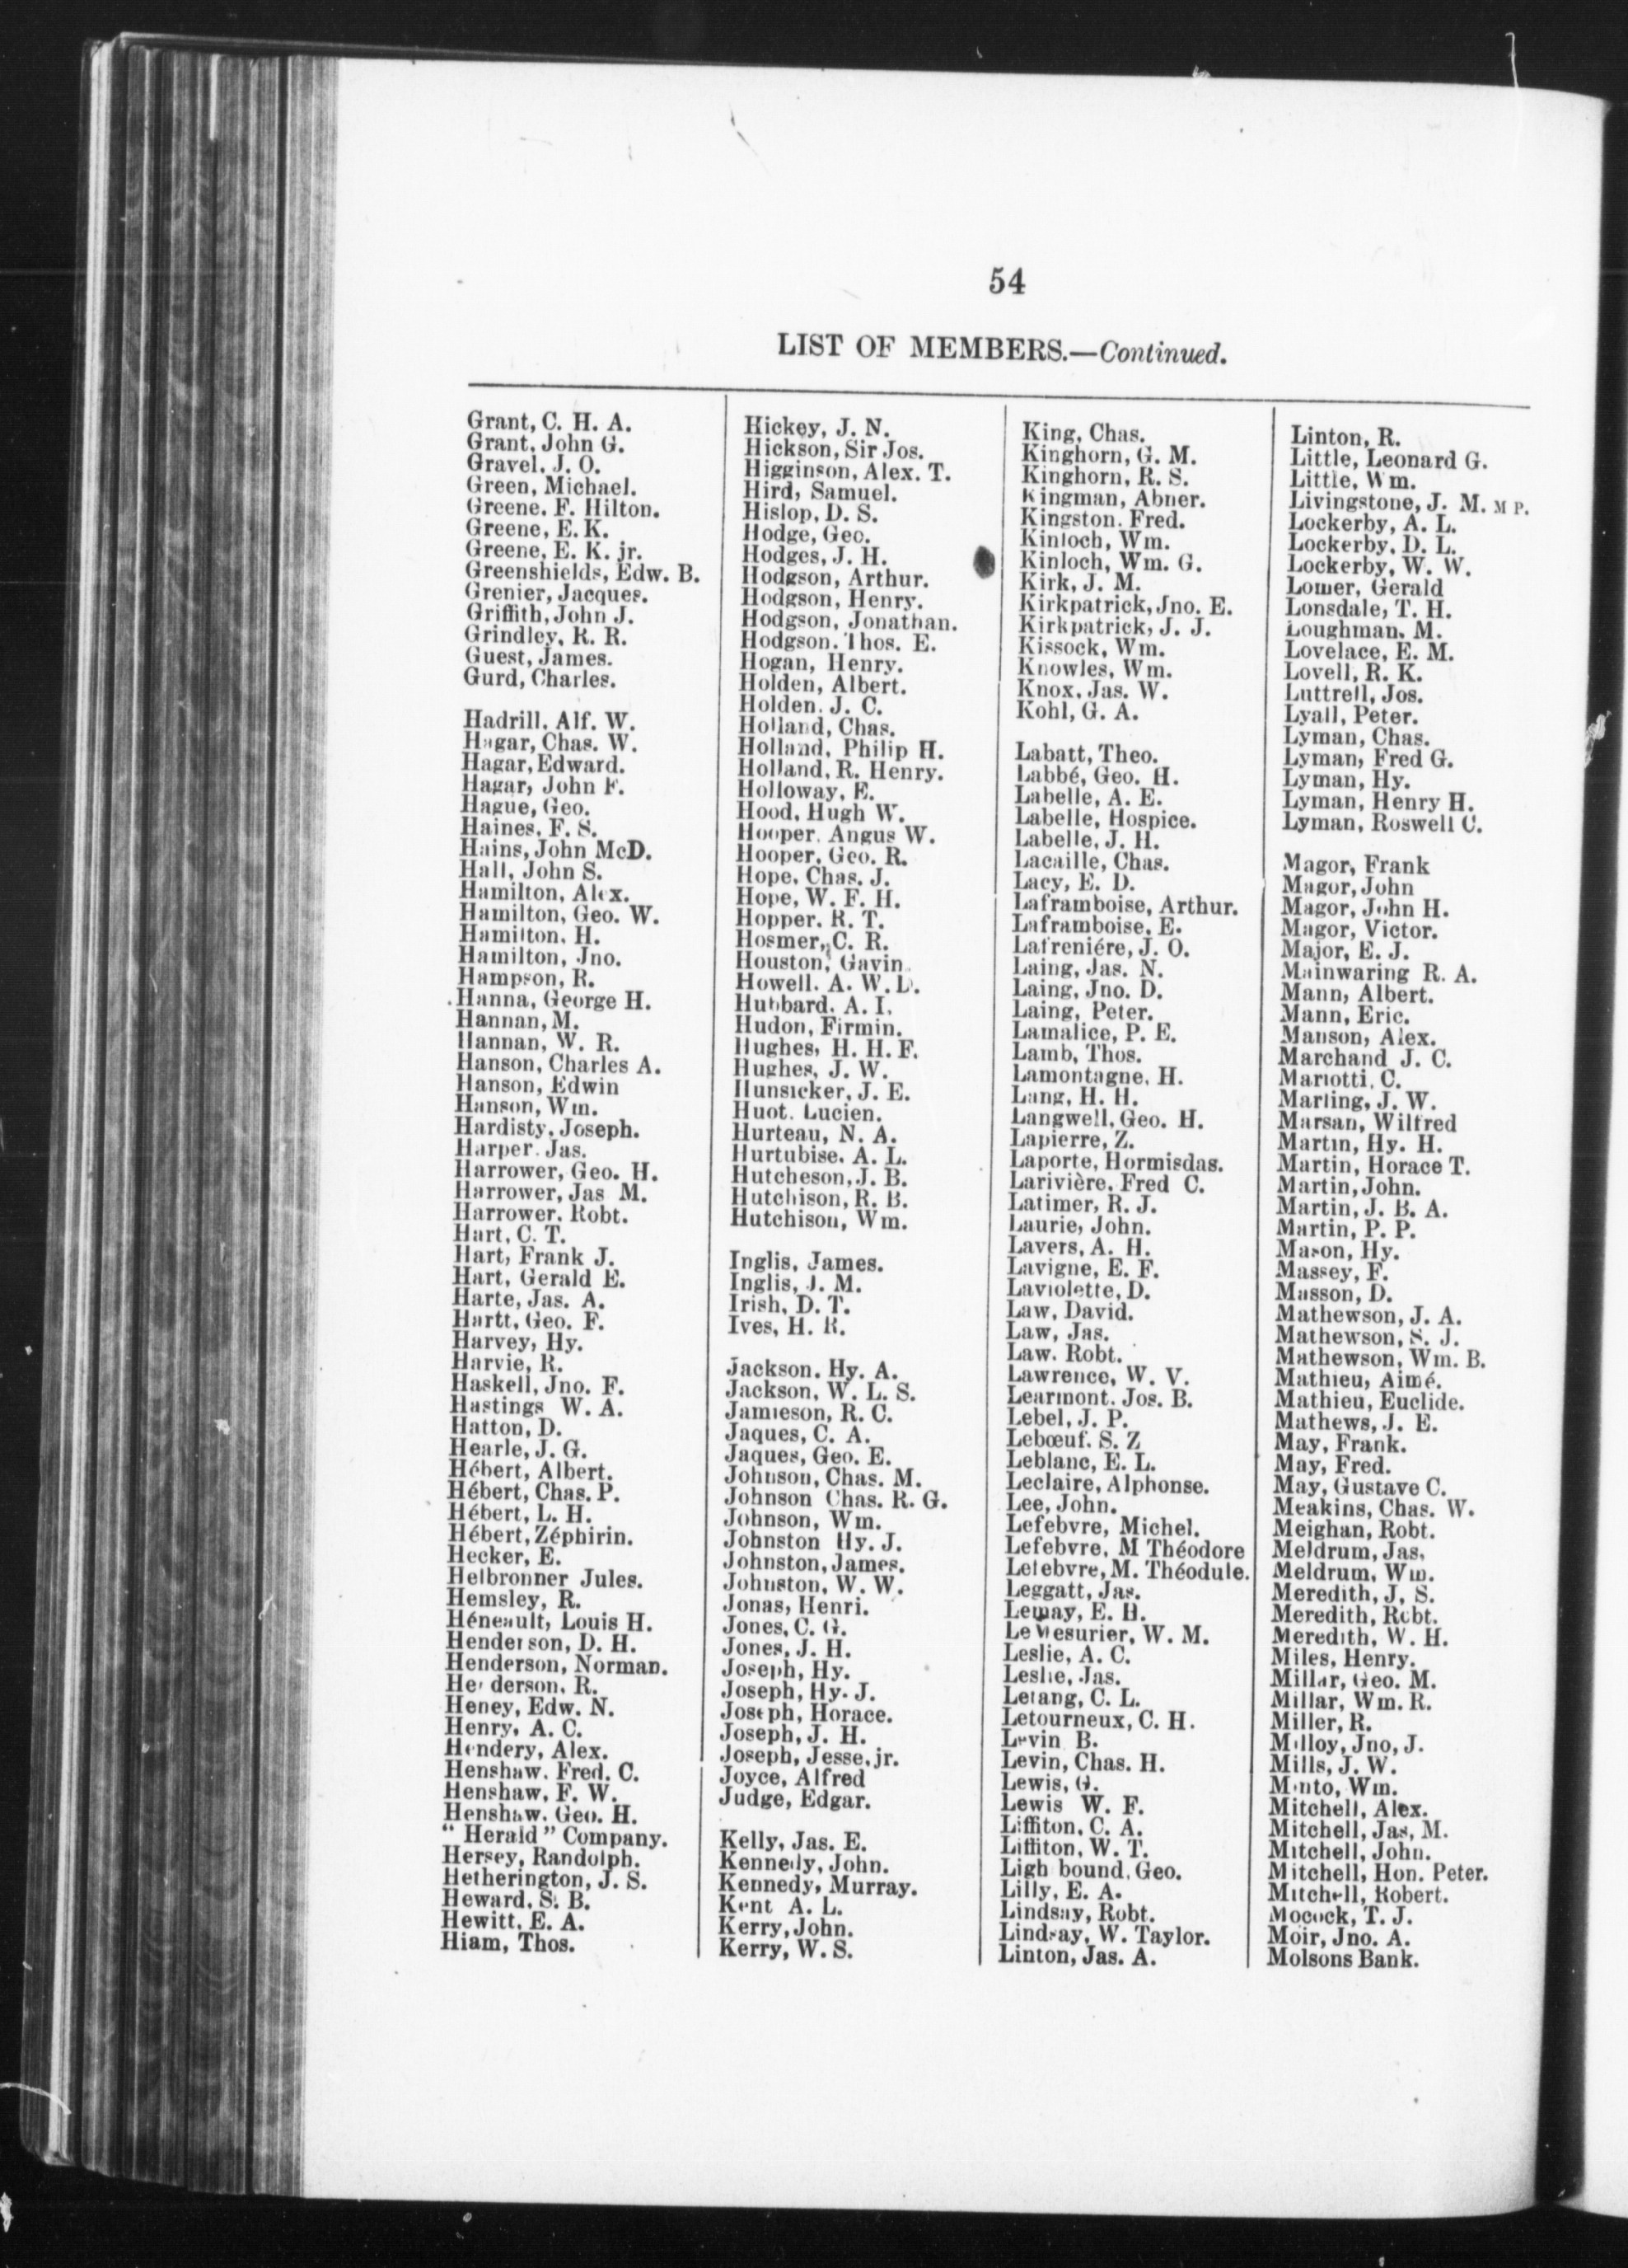 54
LIST OF MEMBERS.—Continued.
Grant, C. H. A.
Grant, John G.
Gravel, J. O.
Green, Michael.
Greene, F. Hilton.
Greene, E. K.
Greene, E. K. jr.
Greenshields, Edw. B.
Grenier, Jacques.
Griffith, John J.
Grindley, R. R.
Guest, James.
Gurd, Charles.
Hadrill, Alf. W.
Hagar, Chas. W.
Hagar, Edward.
Hagar, John F.
Hague, Geo.
Haines, F. S.
Hains, John McD.
Hall, John S.
Hamilton, Alex.
Hamilton, Geo. W.
Hamilton, H.
Hamilton, Jno.
Hampson, R.
Hanna, George H.
Hannan, M.
Hannan, W. R.
Hanson, Charles A.
Hanson, Edwin
Hanson, Wm.
Hardisty, Joseph.
Harper, Jas.
Harrower, Geo. H.
Harrower, Jas M.
Harrower, Robt.
Hart, C. T.
Hart, Frank J.
Hart, Gerald E.
Harte, Jas. A.
Hartt, Geo. F.
Harvey, Hy.
Harvie, R.
Haskell, Jno. F.
Hastings W. A.
Hatton, D.
Hearle, J. G.
Hébert, Albert.
Hébert, Chas. P.
Hébert, L. H.
Hébert, Zéphirin.
Hecker, E.
Helbronner Jules.
Hemsley, R.
Héneault, Louis H.
Henderson, D. H.
Henderson, Norman.
Henderson, R.
Heney, Edw. N.
Henry, A. C.
Hendery, Alex.
Henshaw, Fred. C.
Henshaw, F. W.
Henshaw, Geo. H.
" Herald " Company.
Hersey, Randolph.
Hetherington, J. S.
Heward, S. B.
Hewitt, E. A.
Hiam, Thos.
Hickey, J. N.
Hickson, Sir Jos.
Higginson, Alex. T.
Hird, Samuel.
Hislop, D. S.
Hodge, Geo.
Hodges, J. H.
Hodgson, Arthur.
Hodgson, Henry.
Hodgson, Jonathan.
Hodgson, Thos. E.
Hogan, Henry.
Holden, Albert.
Holden, J. C.
Holland, Chas.
Holland, Philip H.
Holland, R. Henry.
Holloway, E.
Hood, Hugh W.
Hooper, Angus W.
Hooper, Geo. R.
Hope, Chas. J.
Hope, W. F. H.
Hopper, R. T.
Hosmer, C. R.
Houston, Gavin
Howell, A. W. D.
Hubbard, A. I.
Hudon, Firmin.
Hughes, H. H. F.
Hughes, J. W.
Hunsicker, J. E.
Huot, Lucien.
Hurteau, N. A.
Hurtubise, A. L.
Hutcheson, J. B.
Hutchison, R. B.
Hutchison, Wm.
Inglis, James.
Inglis, J. M.
Irish, D. T.
Ives, H. R.
Jackson, Hy. A.
Jackson, W. L. S.
Jamieson, R. C.
Jaques, C. A.
Jaques, Geo. E.
Johnson, Chas. M.
Johnson Chas. R. G.
Johnson, Wm.
Johnston Hy. J.
Johnston, James.
Johnston, W. W.
Jonas, Henri.
Jones, C. G.
Jones, J. H.
Joseph, Hy.
Joseph, Hy. J.
Joseph, Horace.
Joseph, J. H.
Joseph, Jesse, jr.
Joyce, Alfred
Judge, Edgar.
Kelly, Jas. E.
Kennedy, John.
Kennedy, Murray.
Kent A. L.
Kerry, John.
Kerry, W. S.
King, Chas.
Kinghorn, G. M.
Kinghorn, R. S.
Kingman, Abner.
Kingston, Fred.
Kinloch, Wm.
Kinloch, Wm. G.
Kirk, J. M.
Kirkpatrick, Jno. E.
Kirkpatrick, J. J.
Kissock, Wm.
Knowles, Wm.
Knox, Jas. W.
Kohl, G. A.
Labatt, Theo.
Labbé, Geo. H.
Labelle, A. E.
Labelle, Hospice.
Labelle, J. H.
Lacaille, Chas.
Lacy, E. D.
Laframboise, Arthur.
Laframboise, E.
Lafreniére, J. O.
Laing, Jas. N.
Laing, Jno. D.
Laing, Peter.
Lamalice, P. E.
Lamb, Thos.
Lamontagne, H.
Lang, H. H.
Langwell, Geo. H.
Lapierre, Z.
Laporte, Hormisdas.
Larivière, Fred C.
Latimer, R. J.
Laurie, John.
Lavers, A. H.
Lavigne, E. F.
Laviolette, D.
Law, David.
Law, Jas.
Law, Robt.
Lawrence, W. V.
Learmont, Jos. B.
Lebel, J. P.
Lebœuf, S. Z
Leblanc, E. L.
Leclaire, Alphonse.
Lee, John.
Lefebvre, Michel.
Lefebvre, M Théodore
Lefebvre, M. Théodule.
Leggatt, Jas.
Lemay, E. H.
Le Mesurier, W. M.
Leslie, A. C.
Leslie, Jas.
Letang, C. L.
Letourneux, C. H.
Levin B.
Levin, Chas. H.
Lewis, G.
Lewis W. F.
Liffiton, C. A.
Liffiton, W. T.
Ligh bound, Geo.
Lilly, E. A.
Lindsay, Robt.
Lindsay, W. Taylor.
Linton, Jas. A.
Linton, R.
Little, Leonard G.
Little, Wm.
Livingstone, J. M. M P.
Lockerby, A. L.
Lockerby, D. L.
Lockerby, W. W.
Lomer, Gerald
Lonsdale, T. H.
Loughman, M.
Lovelace, E. M.
Lovell, R. K.
Luttrell, Jos.
Lyall, Peter.
Lyman, Chas.
Lyman, Fred G.
Lyman, Hy.
Lyman, Henry H.
Lyman, Roswell C.
Magor, Frank
Magor, John
Magor, John H.
Magor, Victor.
Major, E. J.
Mainwaring R. A.
Mann, Albert.
Mann, Eric.
Manson, Alex.
Marchand J. C.
Mariotti, C.
Marling, J. W.
Marsan, Wilfred
Martin, Hy. H.
Martin, Horace T.
Martin, John.
Martin, J. B. A.
Martin, P. P.
Mason, Hy.
Massey, F.
Masson, D.
Mathewson, J. A.
Mathewson, S. J.
Mathewson, Wm. B.
Mathieu, Aimé.
Mathieu, Euclide.
Mathews, J. E.
May, Frank.
May, Fred.
May, Gustave C.
Meakins, Chas. W.
Meighan, Robt.
Meldrum, Jas,
Meldrum, Wm.
Meredith, J. S.
Meredith, Robt.
Meredith, W. H.
Miles, Henry.
Millar, Geo. M.
Millar, Wm. R.
Miller, R.
Milloy, Jno, J.
Mills, J. W.
Minto, Wm.
Mitchell, Alex.
Mitchell, Jas, M.
Mitchell, John.
Mitchell, Hon. Peter.
Mitchell, Robert.
Mocock, T. J.
Moir, Jno. A.
Molsons Bank.